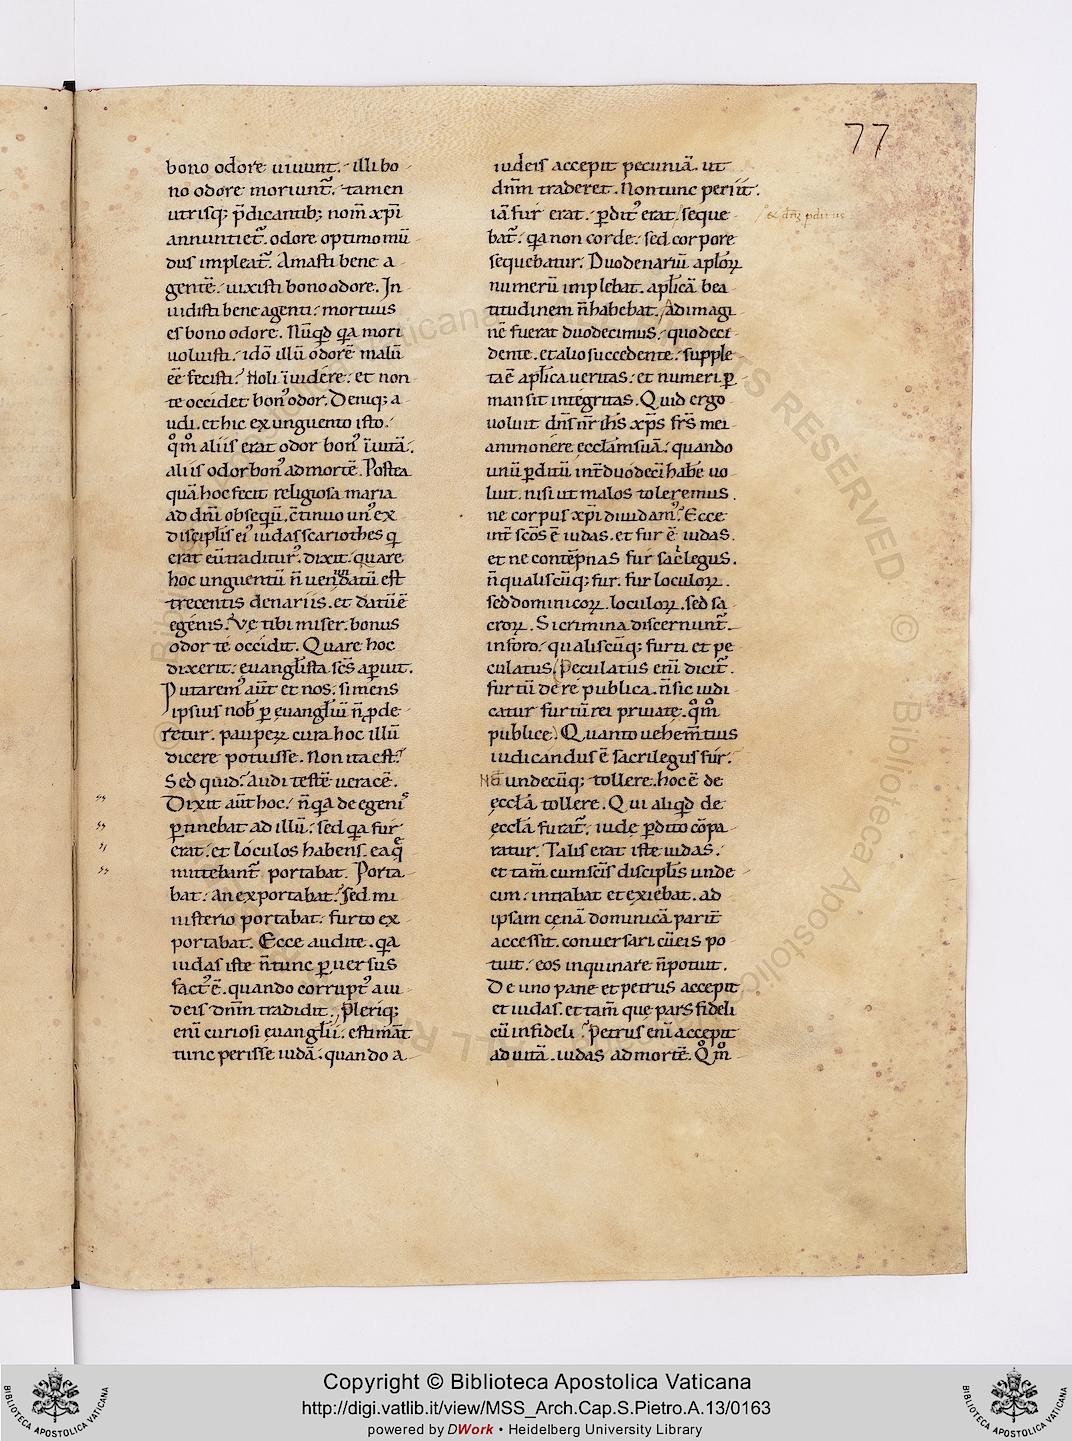 77
bono odore uiuunt. illi bo
no odore moriunt̃. tamen
utrisq; p̃dicantib; nom̃ xp̃i
annuntiet̃. odore optimo mũ
dus impleat̃. Amasti bene a
gentẽ. uixisti bono odore. In
uidisti bene agenti. mortuus
es bono odore. Nũqd qa mori
uoluisti. idõ illũ odorẽ malũ
eẽ fecisti? Noli ĩuidere. et non
te occidet bon᾿ odor. Deniq; a
udi. et hic ex unguento isto.
qm̃ aliis erat odor bon᾿ ĩ uitã.
aliis odor bon᾿ ad mortẽ. Postea
quã hoc fecit religiosa maria
ad dñi obsequiũ. c̃tinuo un᾿ ex
discipl̃is ei᾿ iudas scariothes q
erat eũ traditur᾿. dixit. quare
hoc unguentũ ñ uenundatũ est
trecentis denariis. et datũ ẽ
egenis. Vę tibi miser. bonus
odor te occidit. Quare hoc
dixerit. euangl̃ista sc̃s aperuit.
Putarem᾿ aũt et nos. si mens
ipsius nob̃ p euangl̃iũ ñ pde
retur. pauperꝝ cura hoc illũ
dicere potuisse. Non ita est.
Sed quid? audi testẽ ueracẽ.
Dixit aũt hoc. ñ qa de egenis
ptinebat ad illũ. sed qa fur
erat. et loculos habens. ea quę
mittebant̃ portabat. Porta
bat. an exportabat? Sed mi
nisterio portabat. furto ex
portabat. Ecce audite. qa
iudas iste ñ tunc puersus
fact᾿ ẽ. quando corrupt᾿ a iu
deis dñm tradidit. Pleriq;
enĩ curiosi euangl̃ii. estimãt
tunc perisse iudã. quando a
iudeis accepit pecuniã. ut
dñm traderet. Non tunc periit.
iã fur erat. pdit᾿ erat. seque
bat̃. qa non corde. sed corpore
sequebatur. Duodenariũ aplõꝝ
numerũ implebat. aplicã bea
titudinem ñ habebat. Ad imagi
nẽ fuerat duodecimus. quo deci
dente. et alio succedente. supple
ta ẽ aplica ueritas. et numeri p
mansit integritas. Quid ergo
uoluit dñs nr̃ ihs̃ xp̃s fr̃s mei
ammonere eccl̃am suã. quando
unũ pditũ int̃ duodecĩ habẽ uo
luit. nisi ut malos toleremus.
ne corpus xp̃i diuidam᾿. Ecce
int̃ sc̃os ẽ iudas. et fur ẽ iudas.
et ne contẽpnas fur sacrilegus.
ñ qualiscũq; fur. fur loculoꝝ.
sed dominicoꝝ. loculoꝝ. sed sa
croꝝ. Si crimina discernunt̃.
in foro. qualiscũq; furti et pe
culatus. Peculatus enĩ dicit̃.
furtũ de re publica. ñ sic iudi
catur furtũ rei priuatę. qm̃
publice. Quanto uehem̃tius
iudicandus ẽ sacrilegus fur.
Nõ undecũq; tollere. hoc ẽ de
ęccl̃a tollere. Qui aliqd de
ęccl̃a furat̃. iudę pdito cõpa
ratur. Talis erat iste iudas.
et tam̃ cum sc̃is discipl̃is unde
cim. intrabat et exiebat. ad
ipsam cenã dominicã parit̃
accessit. conuersari cũ eis po
tuit. eos inquinare ñ potuit.
De uno pane et petrus accepit
et iudas. et tam̃ que pars fideli
cũ infideli? Petrus enĩ accepit
ad uitã. iudas ad mortẽ. Qm̃
Copyright © Biblioteca Apostolica Vaticana
http://digi.vatlib.it/view/MSS_Arch.Cap.S.Pietro.A.13/0163
powered by DWork • Heidelberg University Library
BIBLIOTECA APOSTOLICA VATICANA
BIBLIOTECA APOSTOLICA VATICANA